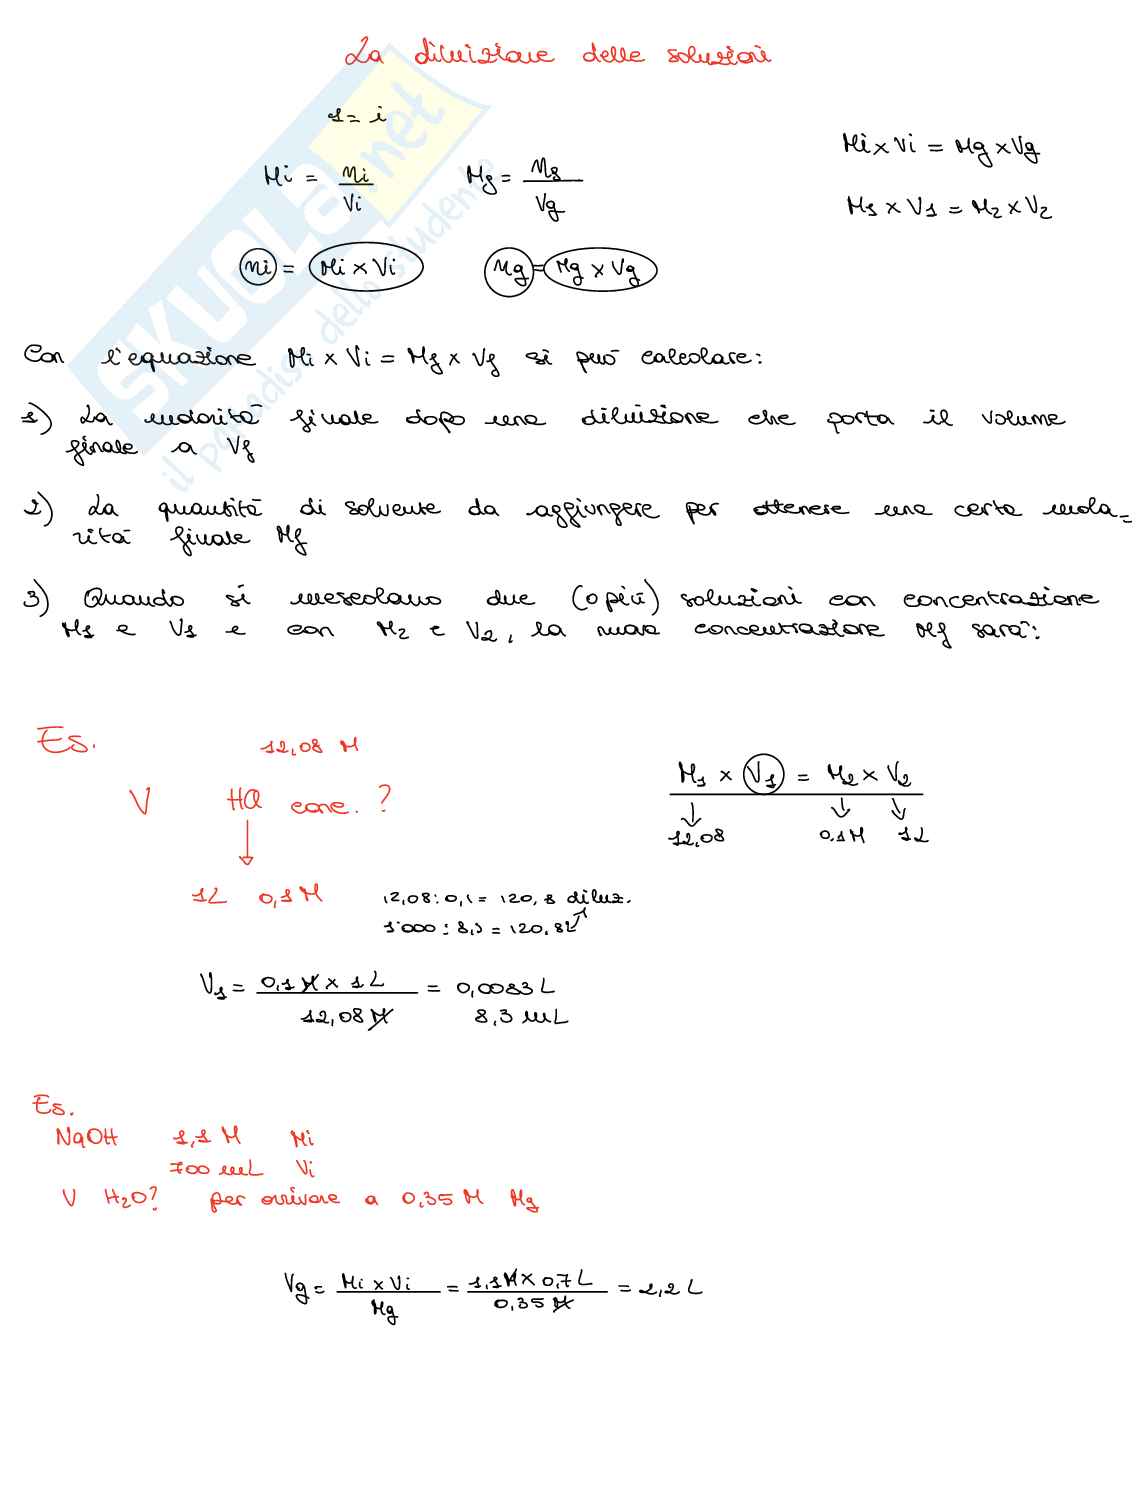 La diluizione delle soluzioni
1 = i
Mi = ni / Vi    Mf = nf / Vf    Mi x Vi = Mf x Vf
M1 x V1 = M2 x V2
ni = Mi x Vi    nf = Mf x Vf
Con l'equazione Mi x Vi = Mf x Vf si può calcolare:
1) La molarità finale dopo una diluizione che porta il volume
finale a Vf
2) La quantità di solvente da aggiungere per ottenere una certa mola-
rità finale Mf
3) Quando si mescolano due (o più) soluzioni con concentrazione
M1 e V1 e con M2 e V2, la nuova concentrazione Mf sarà:
Es.
12,08 M
V HCl conc. ?
M1 x V1 = M2 x V2
12,08    0,1M    1L
1L 0,1 M
12,08 : 0,1 = 120,8 diluz.
1'000 : 8,3 = 120,82
V1 = 0,1 M x 1 L / 12,08 M = 0,0083 L
8,3 mL
Es.
NaOH 1,1 M Mi
700 mL Vi
V H2O? per arrivare a 0,35 M Mf
Vf = Mi x Vi / Mf = 1,1 M x 0,7 L / 0,35 M = 2,2 L
SKUOLA.net
il paradiso dello studente